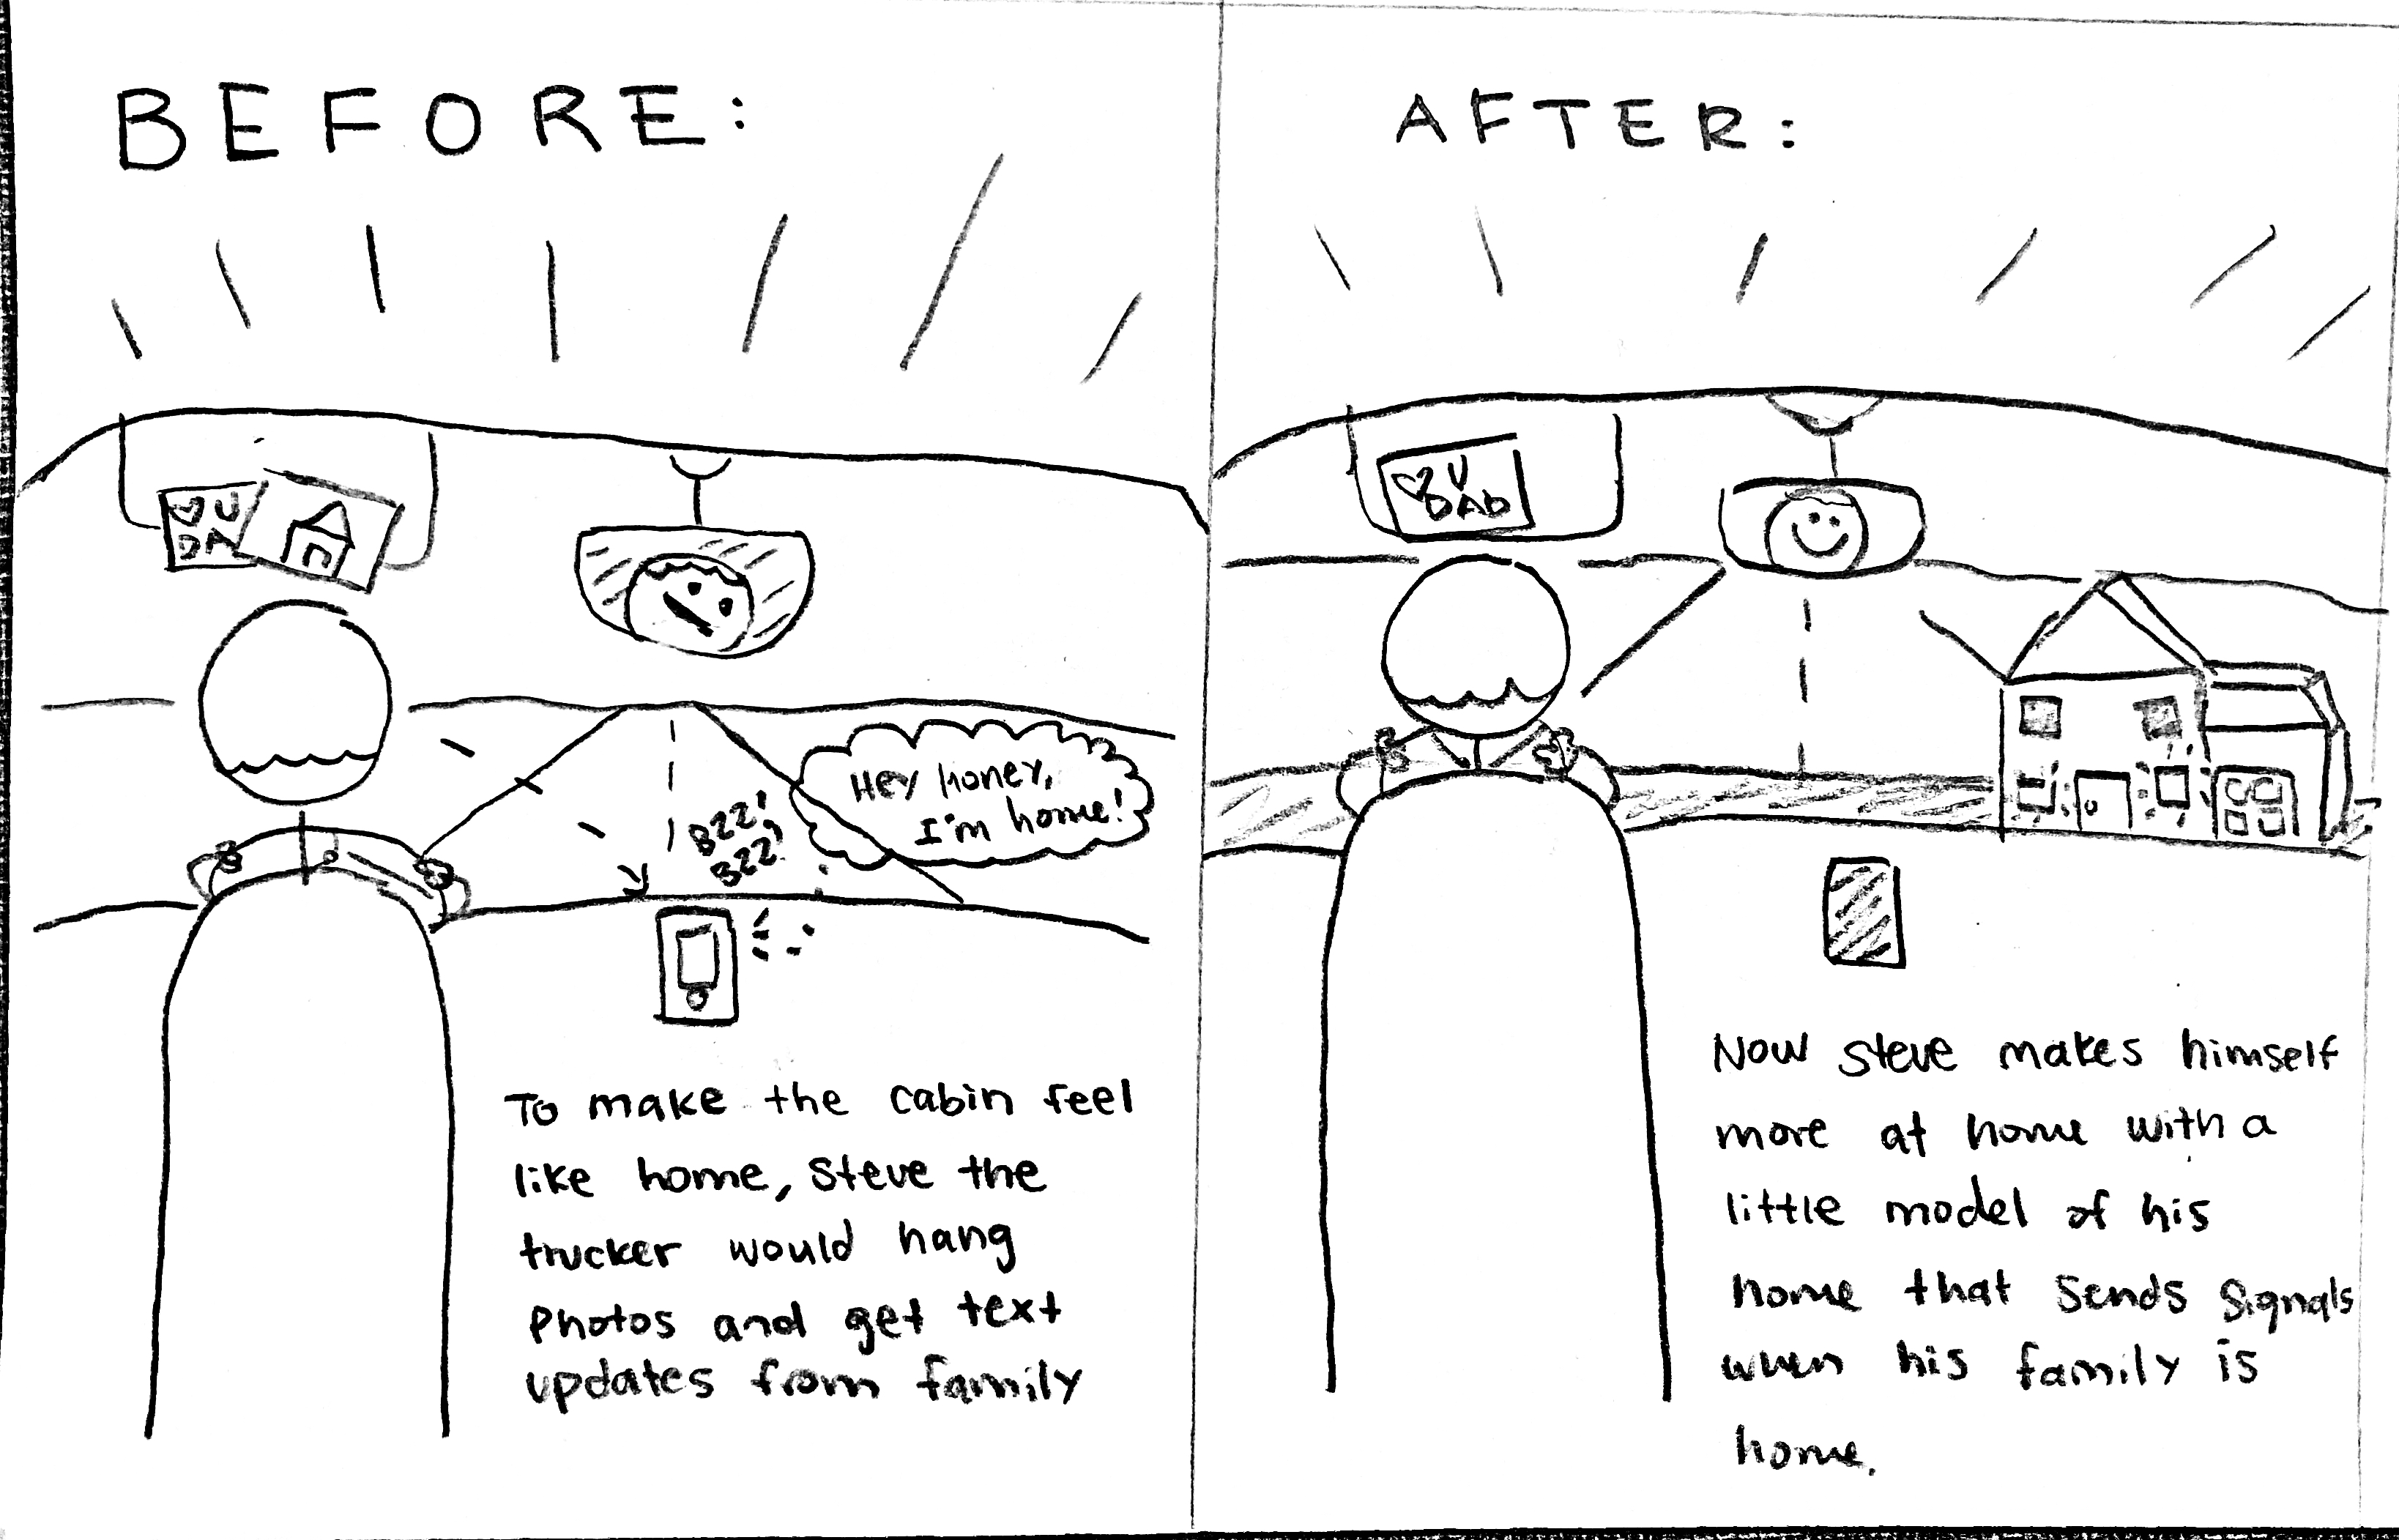 BEFORE:
♡ U
DA
BZZ!
BZZ!
Hey honey,
I'm home!
To make the cabin feel
like home, Steve the
trucker would hang
photos and get text
updates from family
AFTER:
♡ U
DAD
Now Steve makes himself
more at home with a
little model of his
home that sends signals
when his family is
home.